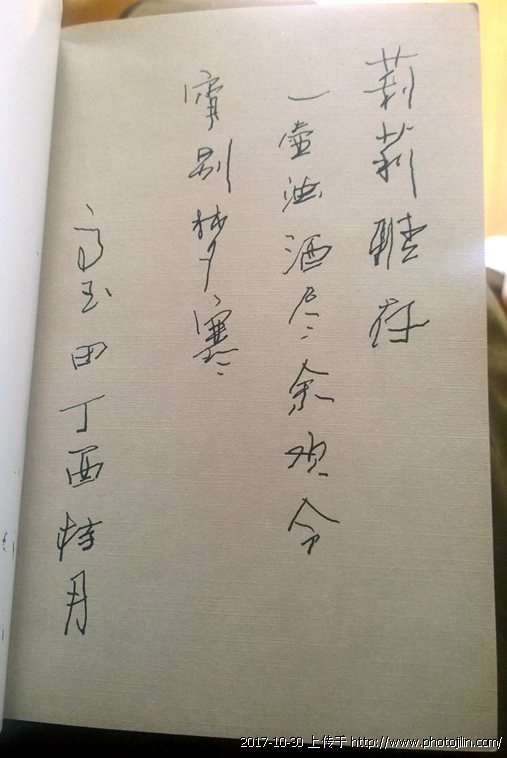 莉莉雅存
一壶浊酒尽余欢今
宵别梦寒
高玉田丁酉桂月
2017-10-30 上传于 http://www.photojilin.com/